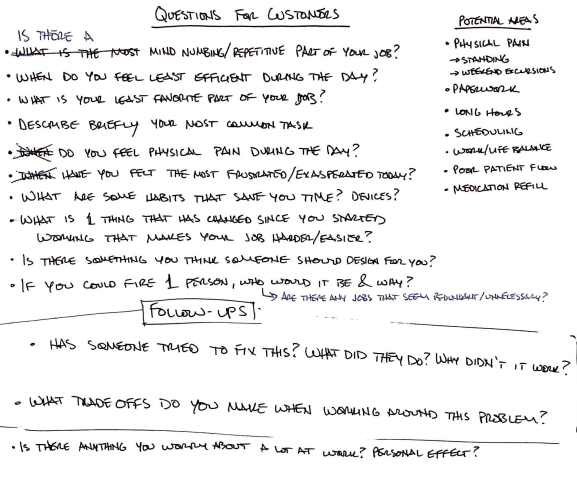 QUESTIONS FOR CUSTOMERS
IS THERE A
• WHAT IS THE MOST MIND NUMBING/REPETITIVE PART OF YOUR JOB?
• WHEN DO YOU FEEL LEAST EFFICIENT DURING THE DAY?
• WHAT IS YOUR LEAST FAVORITE PART OF YOUR JOB?
• DESCRIBE BRIEFLY YOUR MOST COMMON TASK
• WHEN DO YOU FEEL PHYSICAL PAIN DURING THE DAY?
• WHEN HAVE YOU FELT THE MOST FRUSTRATED/EXASPERATED TODAY?
• WHAT ARE SOME HABITS THAT SAVE YOU TIME? DEVICES?
• WHAT IS 1 THING THAT HAS CHANGED SINCE YOU STARTED
WORKING THAT MAKES YOUR JOB HARDER/EASIER?
• IS THERE SOMETHING YOU THINK SOMEONE SHOULD DESIGN FOR YOU?
• IF YOU COULD FIRE 1 PERSON, WHO WOULD IT BE & WHY?
↳ ARE THERE ANY JOBS THAT SEEM REDUNDANT/UNNECESSARY?
FOLLOW-UPS
• HAS SOMEONE TRIED TO FIX THIS? WHAT DID THEY DO? WHY DIDN'T IT WORK?
• WHAT TRADEOFFS DO YOU MAKE WHEN WORKING AROUND THIS PROBLEM?
• IS THERE ANYTHING YOU WORRY ABOUT A LOT AT WORK? PERSONAL EFFECT?
POTENTIAL AREAS
• PHYSICAL PAIN
→ STANDING
→ WEEKEND EXCURSIONS
• PAPERWORK
• LONG HOURS
• SCHEDULING
• WORK/LIFE BALANCE
• POOR PATIENT FLOW
• MEDICATION REFILL